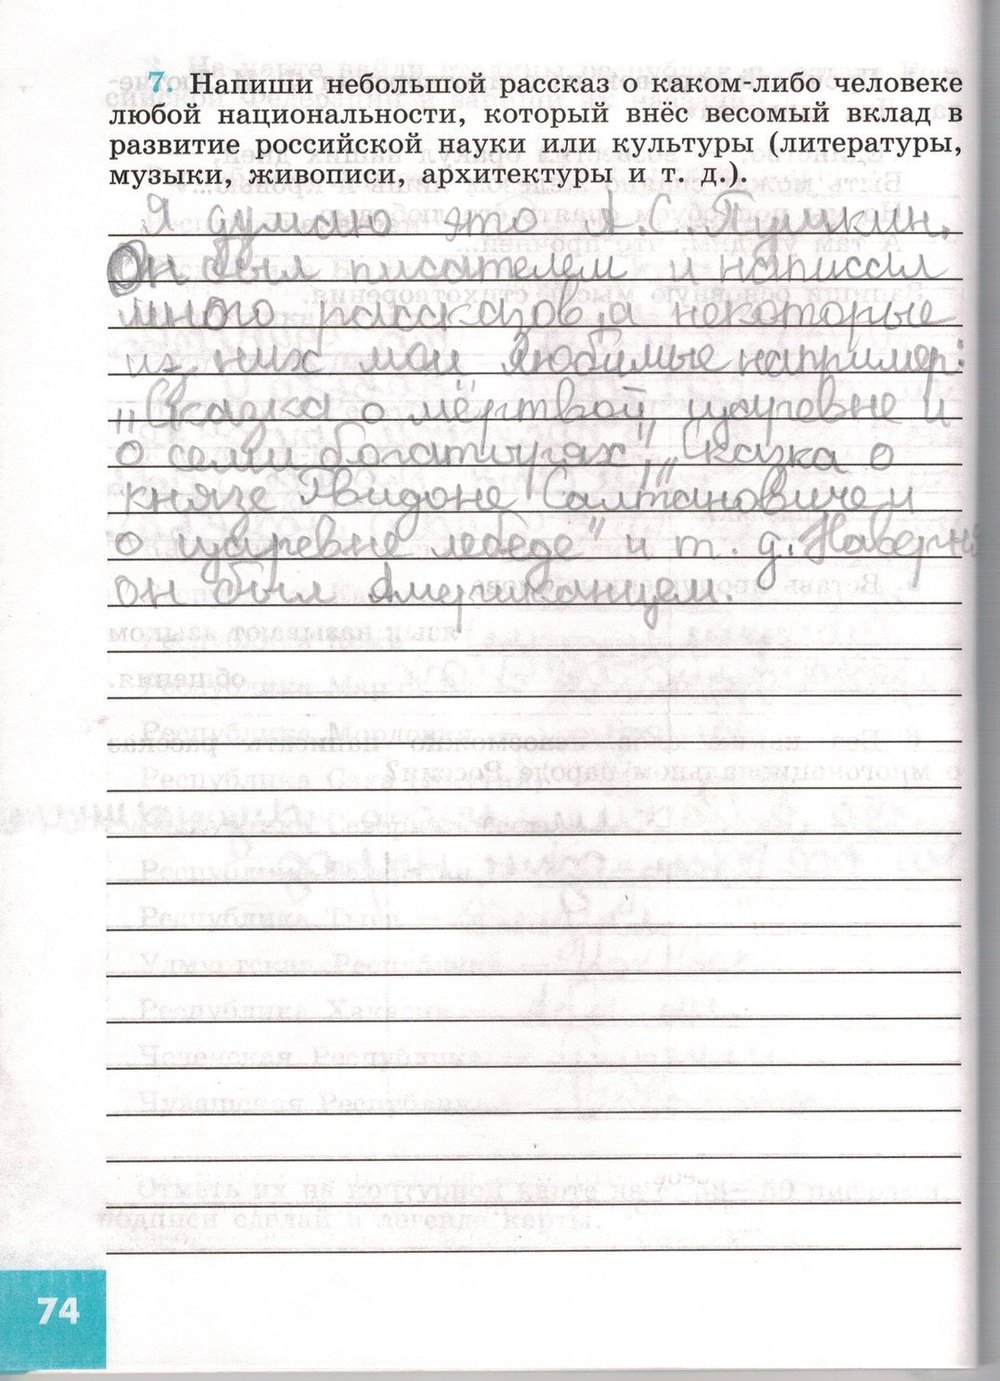 7. Напиши небольшой рассказ о каком-либо человеке
любой национальности, который внёс весомый вклад в
развитие российской науки или культуры (литературы,
музыки, живописи, архитектуры и т. д.).
Я думаю это А.С. Пушкин.
Он был писателем и написал
много рассказов, а некоторые
из них мои любимые например:
„Сказка о мёртвой царевне и
о семи богатырях", „Сказка о
князе Гвидоне Салтановиче и
о царевне лебеде" и т. д. Наверн
он был Американцем.
74